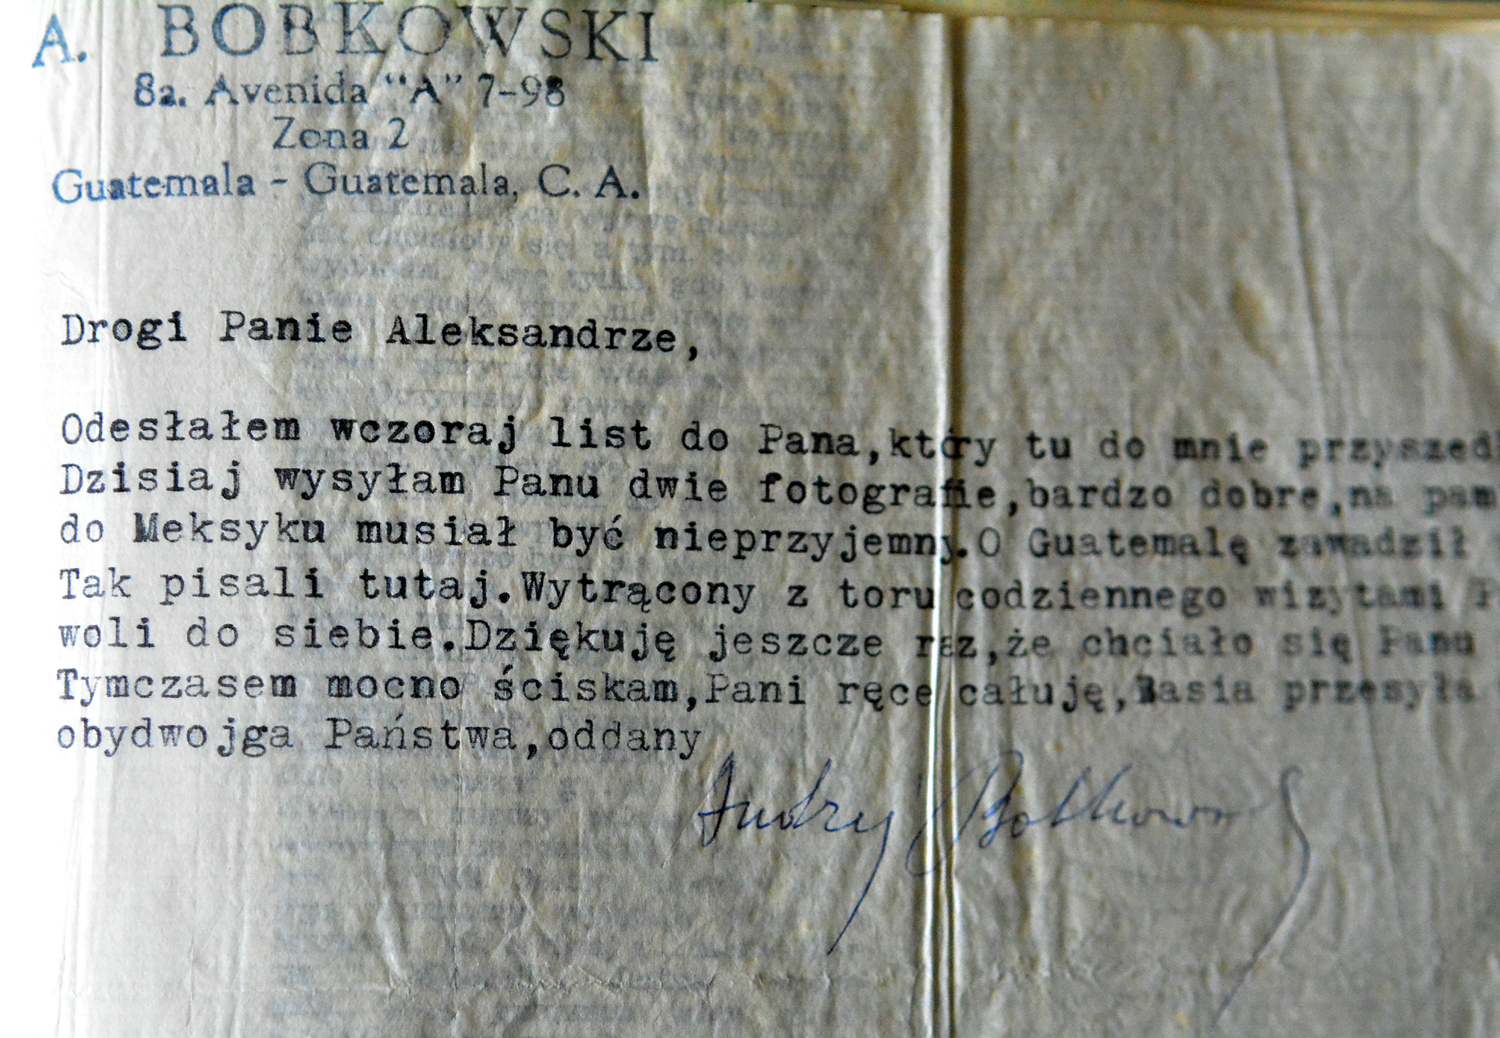 A. BOBKOWSKI
8a. Avenida "A" 7-98
Zona 2
Guatemala - Guatemala, C. A.
Drogi Panie Aleksandrze,
Odesłałem wczoraj list do Pana,który tu do mnie przyszedł
Dzisiaj wysyłam Panu dwie fotografie,bardzo dobre,na pam
do Meksyku musiał być nieprzyjemny.O Guatemalę zawadził
Tak pisali tutaj.Wytrącony z toru codziennego wizytami P
woli do siebie.Dziękuję jeszcze raz,że chciało się Panu
Tymczasem mocno ściskam,Pani ręce całuję,Basia przesyła
obydwojga Państwa,oddany
Andrzej Bobkowski